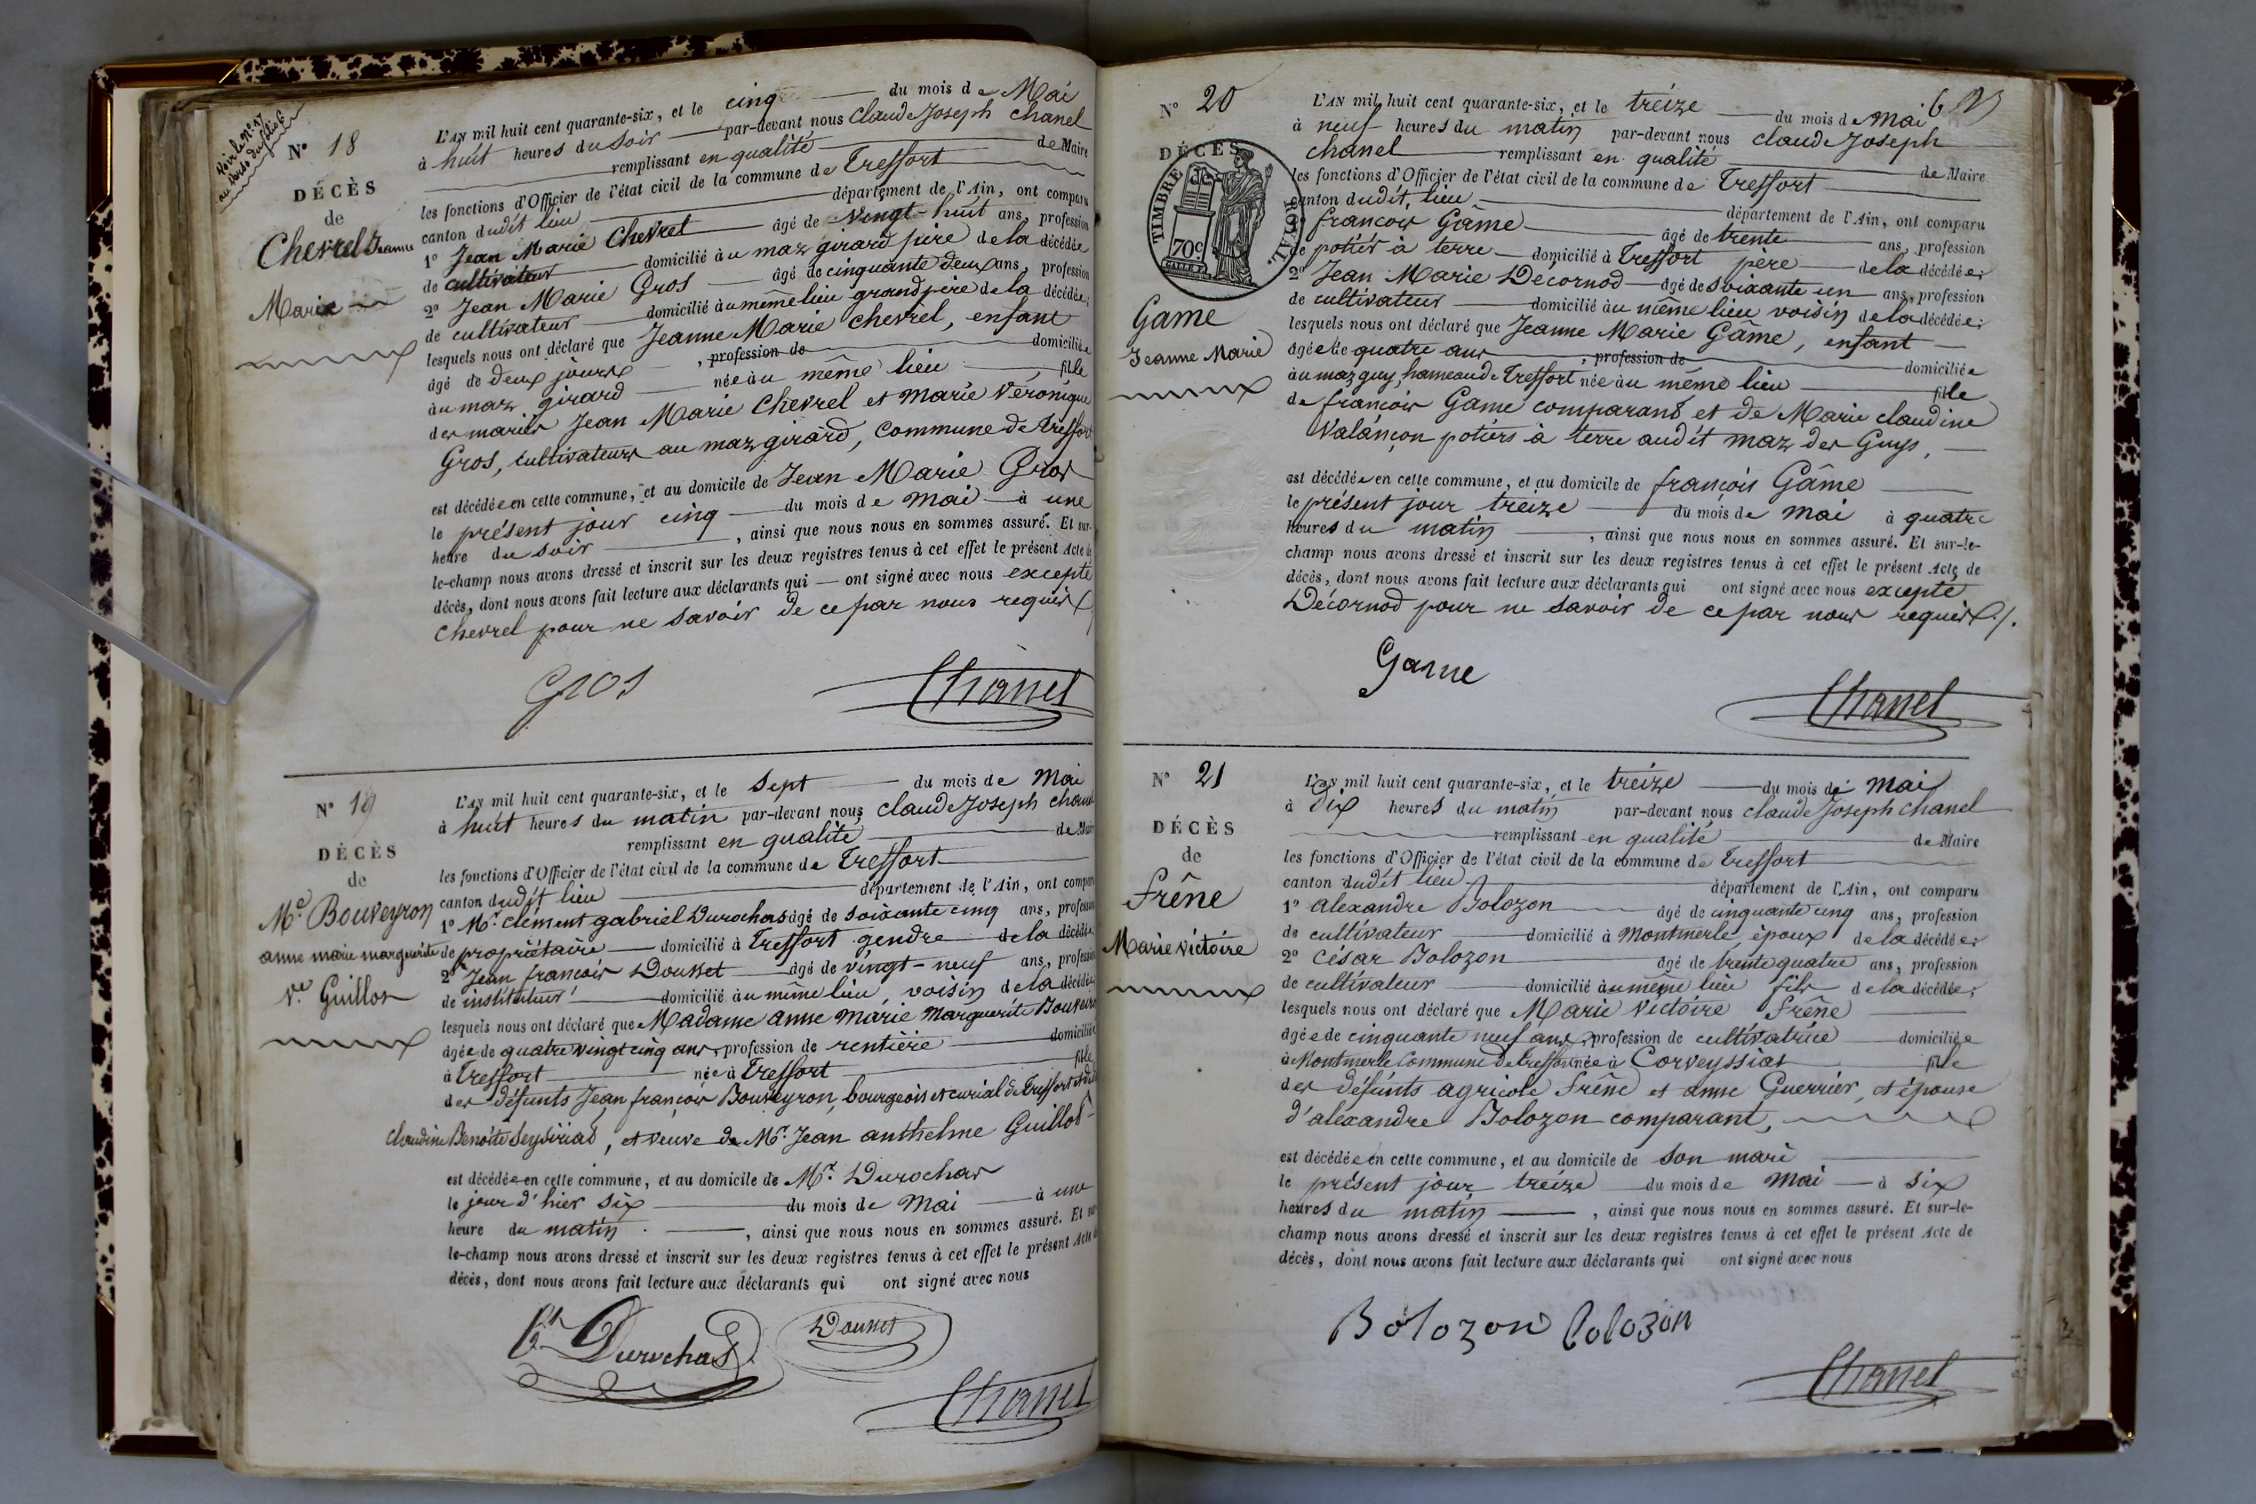 Voir le N° 17
au verso du folio 6
N° 18
DÉCÈS
de
Chevrel Jeanne
Marie
L'AN mil huit cent quarante-six, et le cinq du mois de Mai
à huit heures du soir par-devant nous Claude Joseph Chanel
remplissant en qualité de Maire
les fonctions d'Officier de l'état civil de la commune de Treffort
canton dudit lieu département de l'Ain, ont comparu
1° Jean Marie Chevrel âgé de vingt-huit ans, profession
de cultivateur domicilié au maz girard père de la décédée
2° Jean Marie Gros âgé de cinquante deux ans, profession
de cultivateur domicilié au même lieu grand père de la décédée;
lesquels nous ont déclaré que Jeanne Marie Chevrel, enfant
âgé de deux jours, profession de domiciliée
au maz girard née au même lieu fille
des mariés Jean Marie Chevrel et Marie Véronique
Gros, cultivateurs au maz girard, commune de Treffort
est décédée en cette commune, et au domicile de Jean Marie Gros
le présent jour cinq du mois de Mai à une
heure du soir, ainsi que nous nous en sommes assuré. Et sur-
le-champ nous avons dressé et inscrit sur les deux registres tenus à cet effet le présent Acte de
décès, dont nous avons fait lecture aux déclarants qui ont signé avec nous excepté
Chevrel pour ne savoir de ce par nous requis
Gros
Chanel
N° 19
DÉCÈS
de
Me Bouveyron
anne marie marguerite
Ve Guillot
L'AN mil huit cent quarante-six, et le sept du mois de Mai
à huit heures du matin par-devant nous Claude Joseph Chanel
remplissant en qualité de Maire
les fonctions d'Officier de l'état civil de la commune de Treffort
canton dudit lieu département de l'Ain, ont comparu
1° Mr Clément gabriel Durochas âgé de soixante cinq ans, profession
de propriétaire domicilié à Treffort gendre de la décédée
2° Jean françois Dousset âgé de vingt-neuf ans, profession
de instituteur domicilié au même lieu, voisin de la décédée
lesquels nous ont déclaré que Madame anne marie marguerite Bouveyron
âgée de quatre vingt cinq ans, profession de rentière domiciliée
à Treffort née à Treffort fille
des défunts Jean françois Bouveyron, bourgeois et curial de Treffort et de
Claudine Benoîte Seysiriat, et veuve de Mr Jean anthelme Guillot
est décédée en cette commune, et au domicile de Mr Durochas
le jour d'hier six du mois de Mai à une
heure du matin, ainsi que nous nous en sommes assuré. Et sur-
le-champ nous avons dressé et inscrit sur les deux registres tenus à cet effet le présent Acte de
décès, dont nous avons fait lecture aux déclarants qui ont signé avec nous
Durochas
Dousset
Chanel
N° 20
DÉCÈS
TIMBRE ROYAL
70c
Game
Jeanne Marie
L'AN mil huit cent quarante-six, et le treize du mois de Mai 6
à neuf heures du matin par-devant nous Claude Joseph
Chanel remplissant en qualité de Maire
les fonctions d'Officier de l'état civil de la commune de Treffort
canton dudit lieu département de l'Ain, ont comparu
françois Gâme âgé de trente ans, profession
de potier à terre domicilié à Treffort père de la décédée;
2° Jean Marie Décornod âgé de soixante un ans, profession
de cultivateur domicilié au même lieu voisin de la décédée;
lesquels nous ont déclaré que Jeanne Marie Gâme, enfant
âgée de quatre ans, profession de domiciliée
au maz guy, hameau de Treffort née au même lieu fille
de françois Game comparant et de Marie claudine
Valançon potiers à terre audit maz des Guys,
est décédée en cette commune, et au domicile de françois Gâme
le présent jour treize du mois de Mai à quatre
heures du matin, ainsi que nous nous en sommes assuré. Et sur-le-
champ nous avons dressé et inscrit sur les deux registres tenus à cet effet le présent Acte de
décès, dont nous avons fait lecture aux déclarants qui ont signé avec nous excepté
Décornod pour ne savoir de ce par nous requis./.
Game
Chanel
N° 21
DÉCÈS
de
frêne
Marie victoire
L'AN mil huit cent quarante-six, et le treize du mois de Mai
à dix heures du matin par-devant nous Claude Joseph Chanel
remplissant en qualité de Maire
les fonctions d'Officier de l'état civil de la commune de Treffort
canton dudit lieu département de l'Ain, ont comparu
1° alexandre Bolozon âgé de cinquante cinq ans, profession
de cultivateur domicilié à Montmerle, époux de la décédée;
2° César Bolozon âgé de trente quatre ans, profession
de cultivateur domicilié au même lieu fils de la décédée;
lesquels nous ont déclaré que Marie Victoire frêne
âgée de cinquante neuf ans, profession de cultivatrice domiciliée
à Montmerle Commune de Treffort née à Corveyssiat fille
des défunts agricole frêne et anne Guerrier, et épouse
d'alexandre Bolozon comparant,
est décédée en cette commune, et au domicile de son mari
le présent jour treize du mois de Mai à six
heures du matin, ainsi que nous nous en sommes assuré. Et sur-le-
champ nous avons dressé et inscrit sur les deux registres tenus à cet effet le présent Acte de
décès, dont nous avons fait lecture aux déclarants qui ont signé avec nous
Bolozon bolozon
Chanel